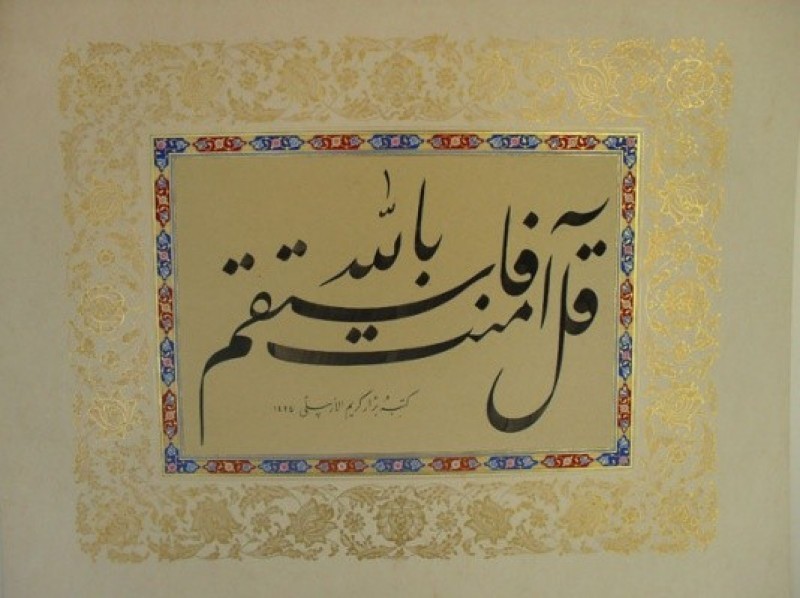 قل آمنت بالله فاستقم
كتبه بژار كريم الأربيلي ١٤٢٥